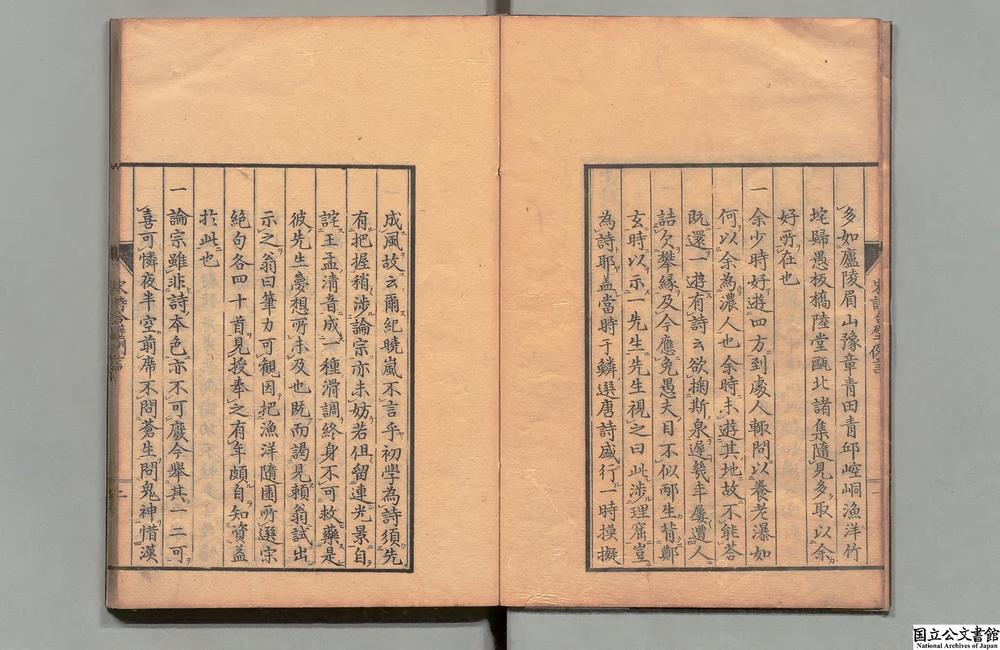 多如廬陵眉山豫章青田青邱崆峒漁洋竹
垞歸愚板橋陸堂甌北諸集隨見多取以余
好所在也
一 余少時好遊四方到處人輙問以養老瀑如
何以余為濃人也余時未遊其地故不能荅
既還一遊有詩云欲掬斯泉遲幾年屢遭人
詰欠攀緣及今應免愚夫目不似邴生背鄭
玄時以示一先生先生視之曰此涉理窟豈
為詩耶葢當時于鱗選唐詩盛行一時摸擬
成風故云爾紀曉嵐不言乎初學為詩須先
有把握稍涉論宗亦未妨若但留連光景自
詫王孟清音成一種滑調終身不可救藥是
彼先生夢想所未及也既而謁見賴翁試出
示之翁曰筆力可觀因把漁洋隨園所選宗
絕句各四十首見授奉之有年頗自知資益
於此也
一 論宗雖非詩本色亦不可廢今舉其一二可
喜可憐夜半空前席不問蒼生問鬼神惜漢
国立公文書館
National Archives of Japan